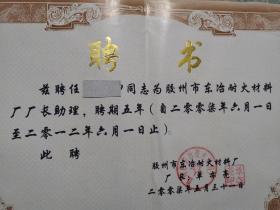 聘书
兹聘任 同志为胶州市东冶耐火材料
厂厂长助理，聘期五年（自二零零柒年六月一日
至二零一二年六月一日止）。
此聘
胶州市东冶耐火材料厂
厂长
二零零柒年五月三十一日